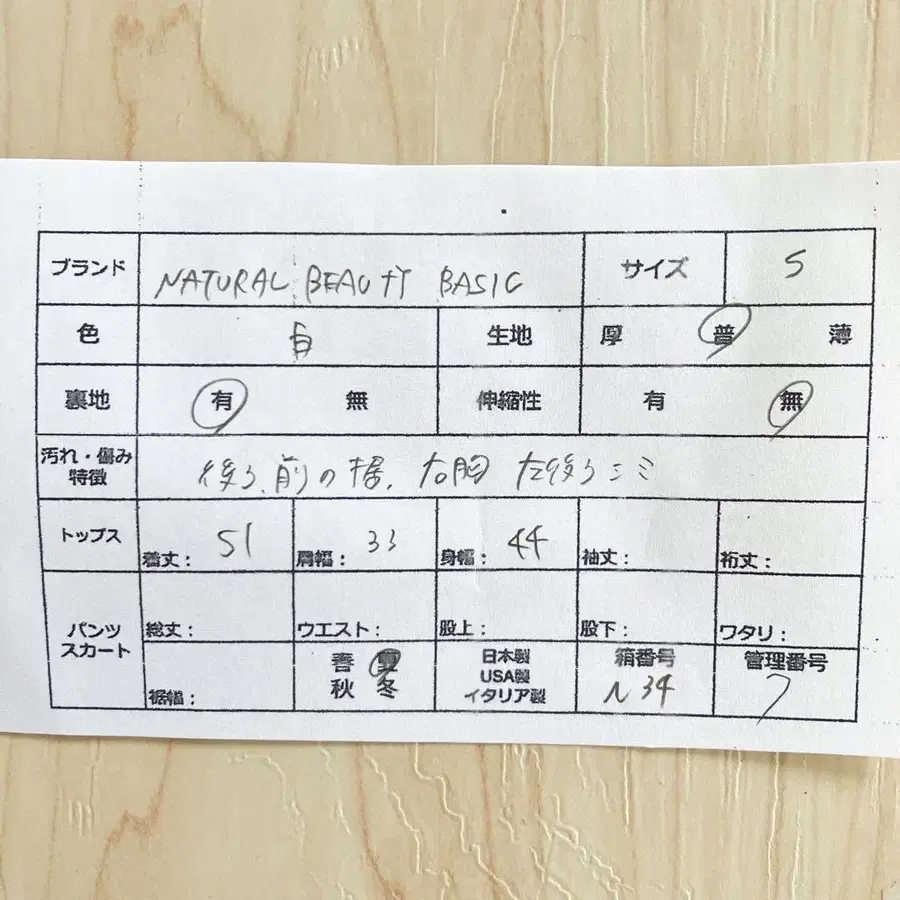 ブランド NATURAL BEAUTY BASIC サイズ S
色 白 生地 厚 普 薄
裏地 有 無 伸縮性 有 無
汚れ・傷み
特徴 後ろ、前の裾、右胸 左後ろシミ
トップス 着丈: 51 肩幅: 33 身幅: 44 袖丈: 裄丈:
パンツ
スカート 総丈: ウエスト: 股上: 股下: ワタリ:
裾幅: 春 夏 日本製 箱番号 管理番号
秋 冬 USA製 N34 7
イタリア製